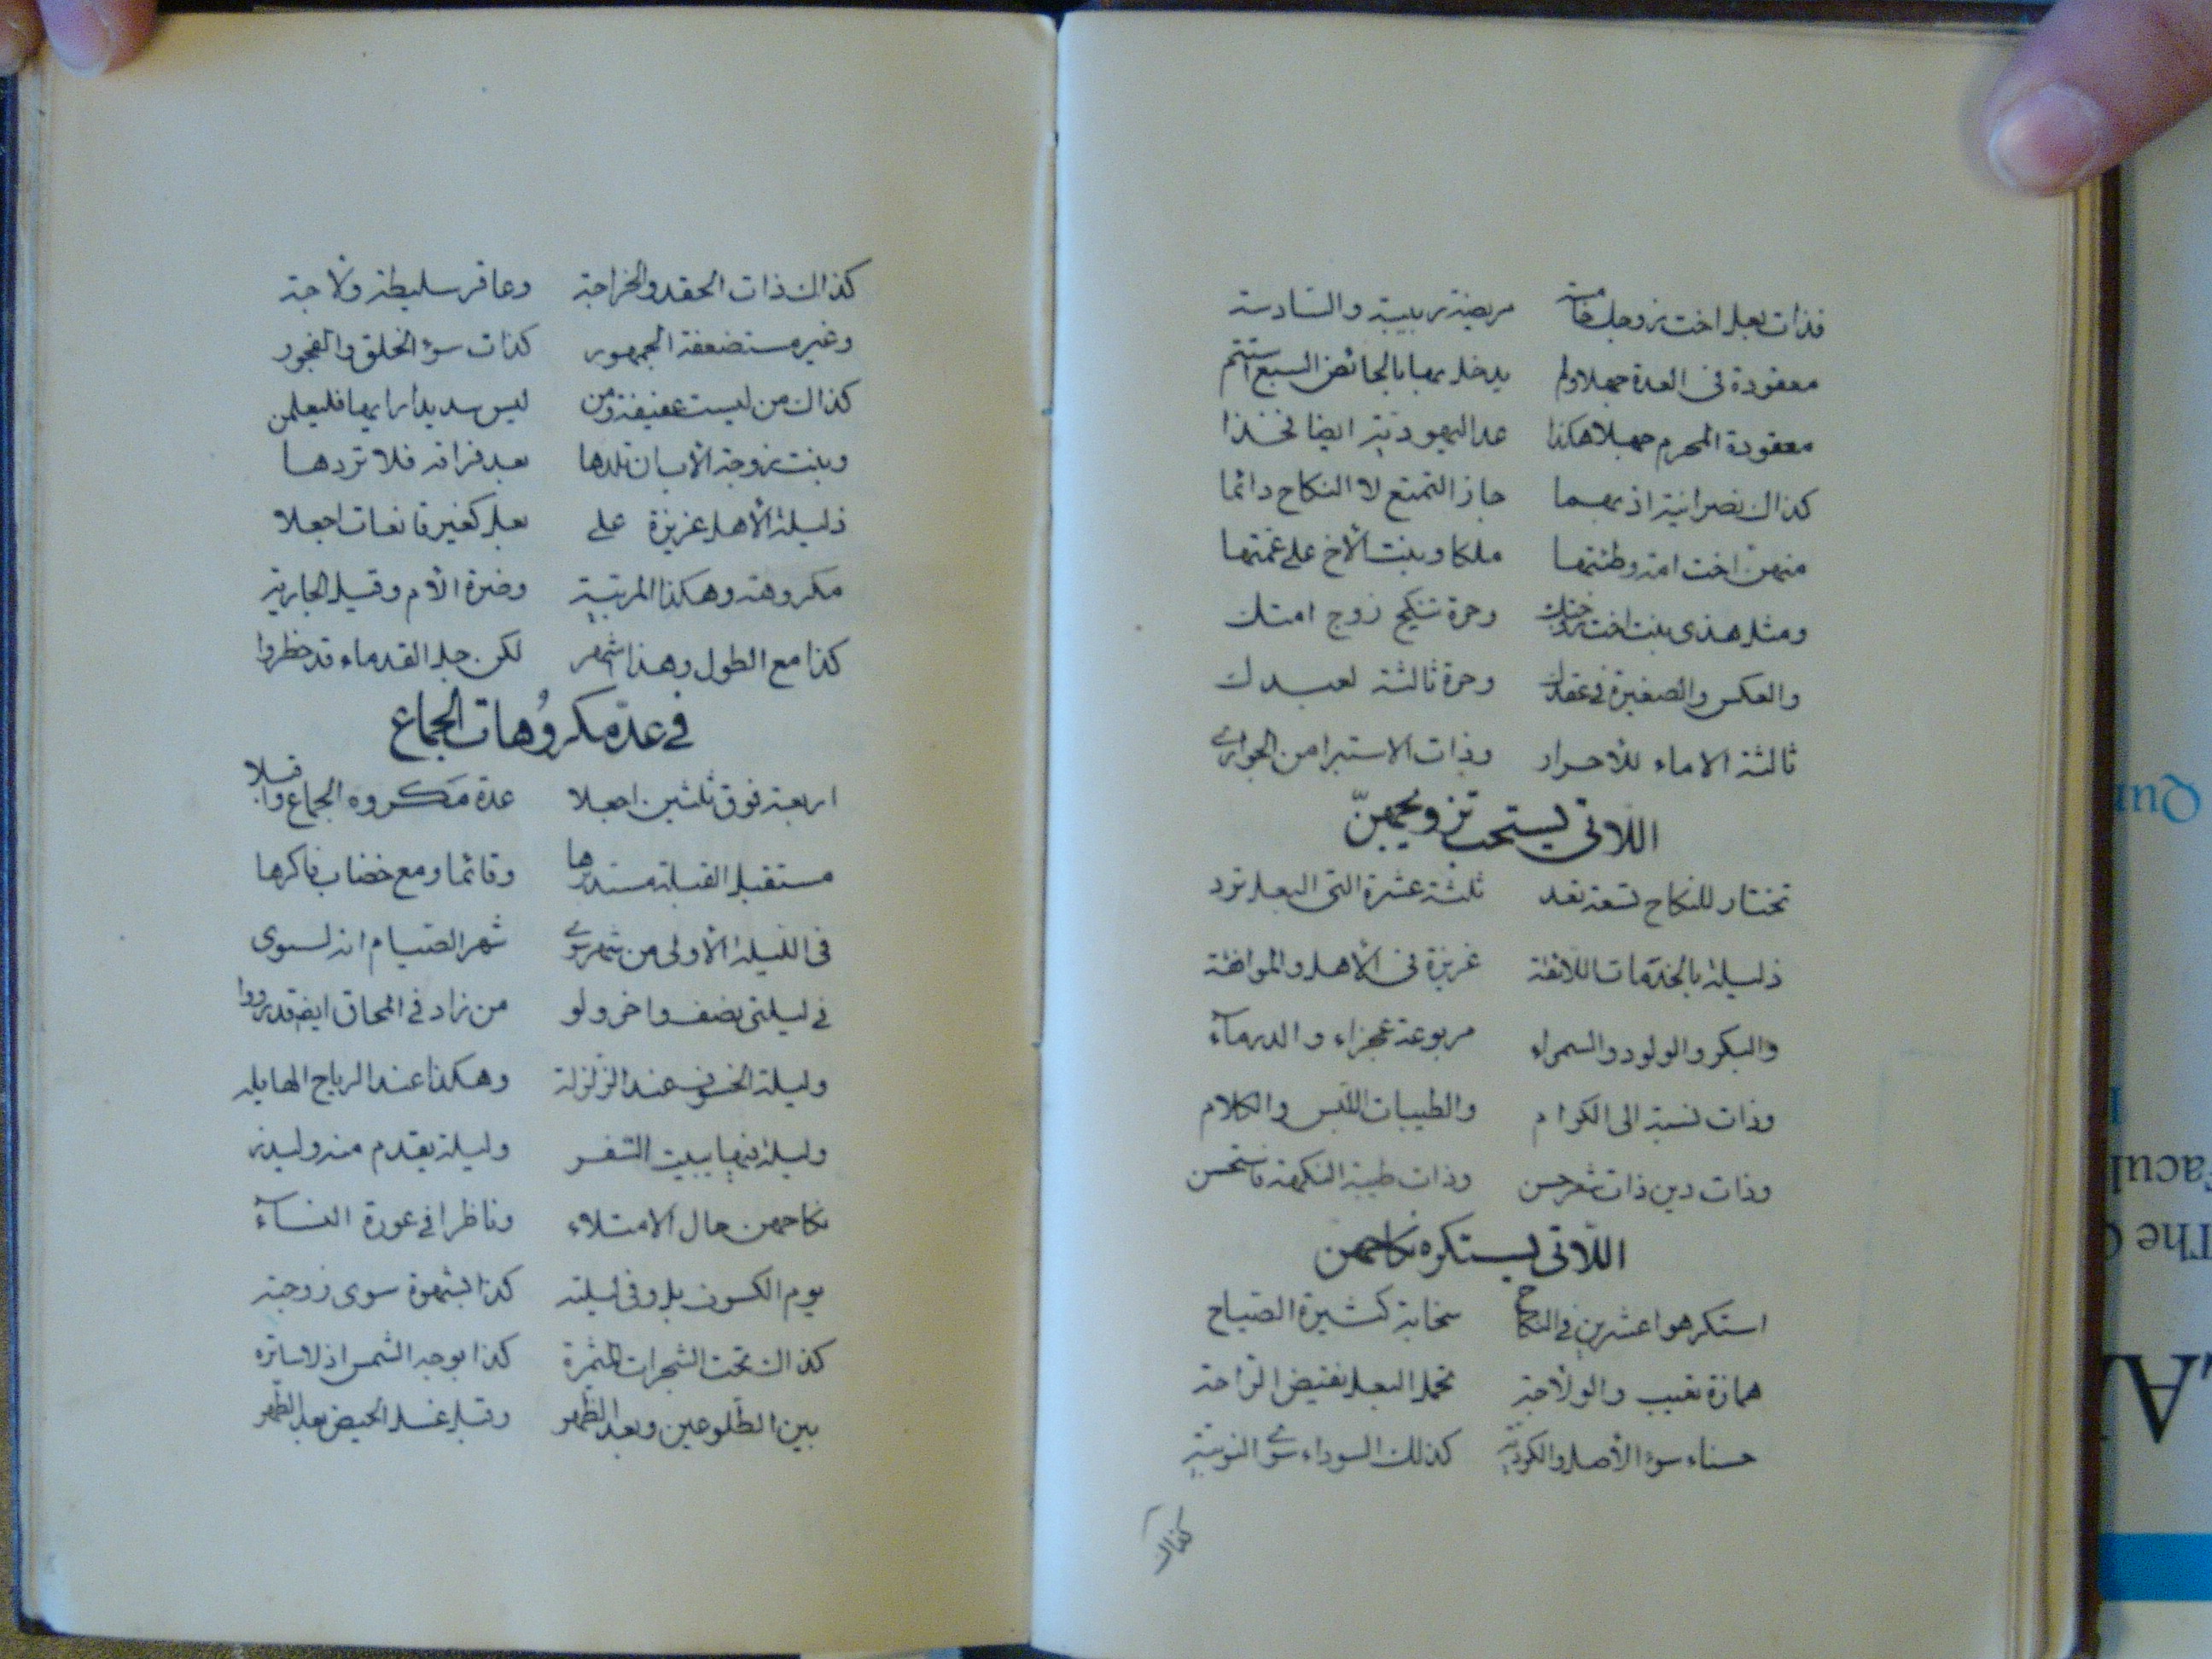 فذات بعل اخت زوجك خامسة مريضة ربيبة والسادسة
معقودة في العدة جهلا ولم يدخل بها بالحائض السبع استتم
معقودة المحرم جهلا هكذا عد اليهودية ايضا فخذا
كذاك نصرانية اذ بهما جاز التمتع لا النكاح دائما
منهن اخت امة وطئتها ملكا وبنت الأخ على عمتها
ومثل هذى بنت اخت زوجتك وحرة تنكح زوج امتك
والعكس والصغيرة في عقدك وحرة ثالثة لعبدك
ثالثة الاماء للأحرار وذات الاستبرا من الجواري
اللآتي يستحب تزويجهن
تختار للنكاح تسعة تعد ثلثة عشرة التي البعل تود
ذليلة بالخدمات اللائقة عزيزة في الأهل والموافقة
والبكر والولود والسمراء مربوعة عجزاء والدرمآء
وذات نسبة الى الكرام والطيبات اللبس والكلام
وذات دين ذات شعر حسن وذات طيبة النكهة فاستحسن
اللآتي يستكره نكاحهن
استكرهوا عشرين في النكاح سخابة كثيرة الصياح
همازة تعيب والولاجة تحمل البعل نقيض الراحة
حسناء سوء الأصل والكردية كذلك السوداء سوى النوبية
كذاك
كذاك ذات الحقد والخراجة وعاقر سليطة ولاجة
وغير مستضعفة الجمهور كذات سوء الخلق والفجور
كذاك من ليست عفيفة ومن ليس سديدا رايها فليعلمن
وبنت زوجة الأب ان تلدها بعد فراقه فلا تردها
ذليلة الأهل عزيزة على بعل كغير قانعات اجعلا
مكروهة وهكذا المربية وضرة الأم وقيل الجارية
كذا مع الطول وهذا اشهر لكن جل القدماء قد حظروا
في عدّة مكروُهات الجماع
اربعة فوق ثلثين اجعلا عدة مكروه الجماع واقبلا
مستقبل القبلة مستدبرها وقائما ومع خضاب فاكرها
في الليلة الأولى من شهر سوى شهر الصيام انه لسوى
في ليلتي نصف واخر ولو من زاد في المحاق ايضا قد رووا
وليلة الخسوف عند الزلزلة وهكذا عند الرياح الهايلة
وليلة فيها يبيت السفر وليلة يقدم منه وليذر
نكاحهن حال الامتلاء وناظرا في عورة النسآء
يوم الكسوف بل وفي ليلته كذا بشهوة سوى زوجته
كذاك تحت الشجرات المثمرة كذا بوجه الشمس اذ لا ساتره
بين الطلوعين وبعد الظهر وقبل غسل الحيض بعد الطهر